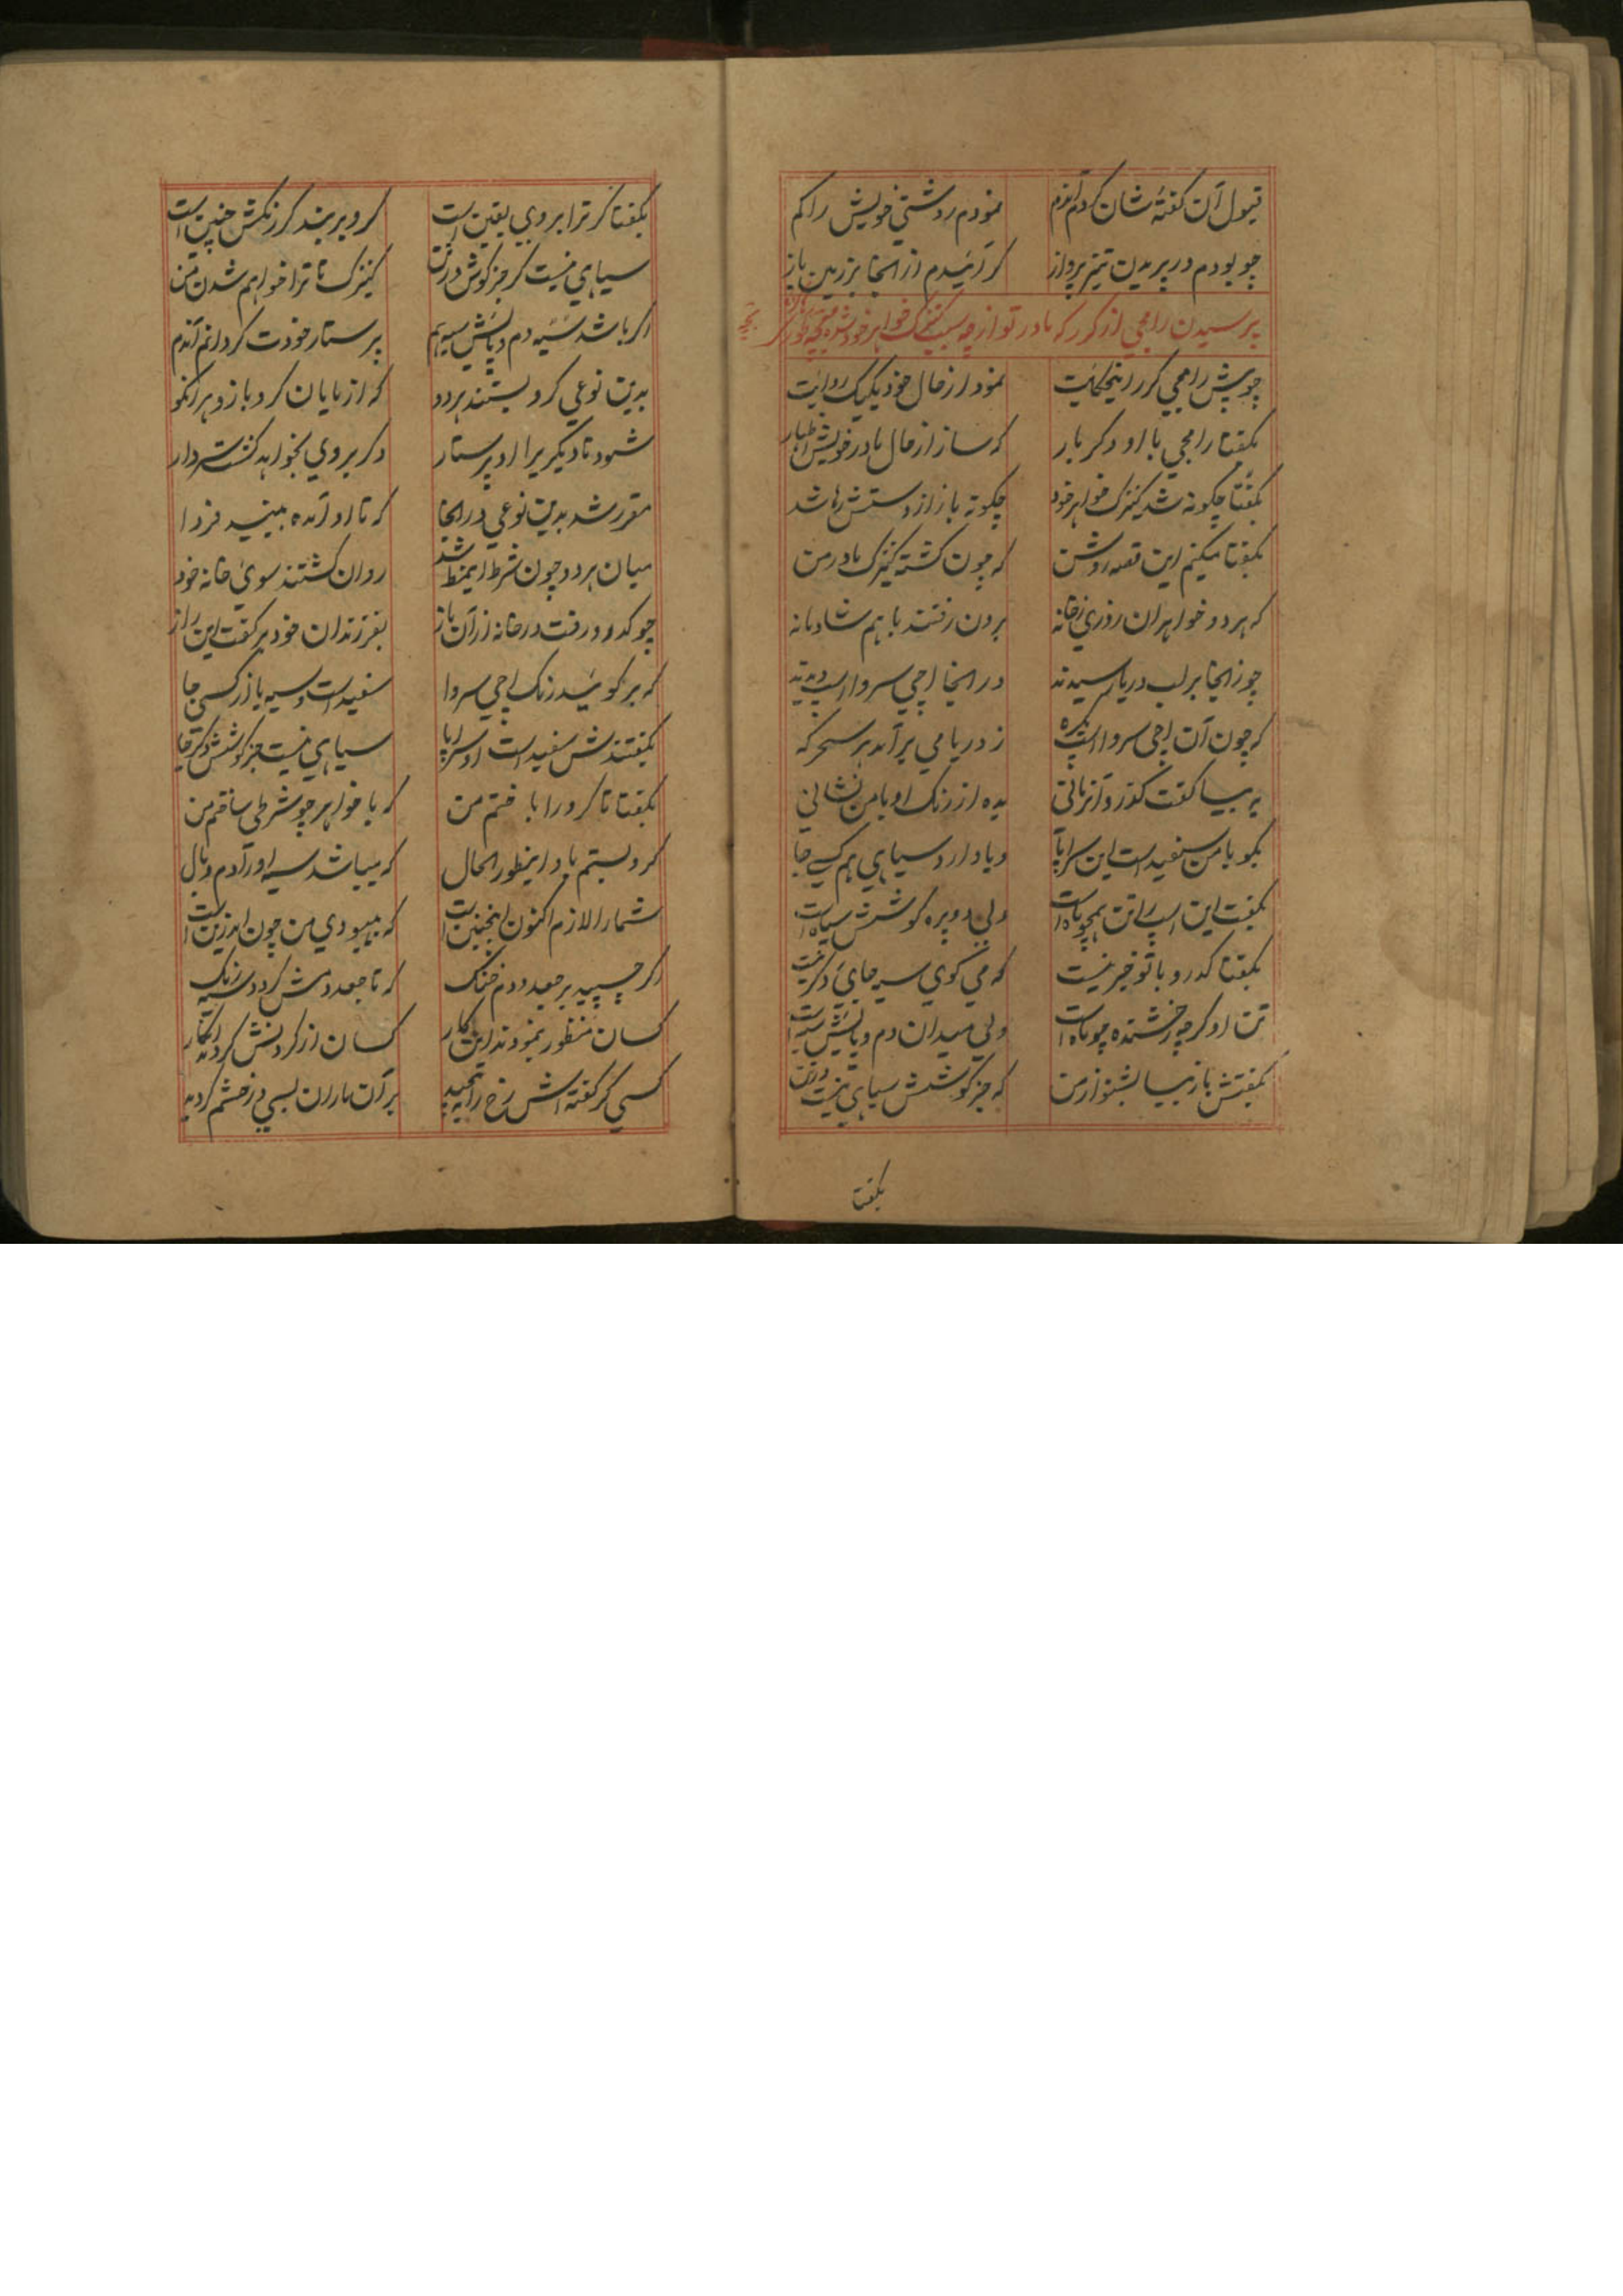 قبول آن گفتهٔ شان کردم آندم نمودم روشنی خویش را کم
چو بودم در پریدن تیز پرواز کرائیدم از انجا بر زمین باز
پرسیدن رامجی از گرر که مادر تو از چه سبب کنیزک خواهر خود شده
چو پیش رامجی گرر اینحکایت نمود از حال خود یکیک روایت
بگفتا رامجی با او دکر بار که ساز از حال مادر خویش اظهار
بگفتا چگونه شد کنیزک خواهر خود چگونه باز از دستش رها شد
بگفتا میکنم این قصه روشن که چون گشته کنیزک مادر من
که هر دو خواهران روزی زخانه برون رفتند باهم شادمانه
چو زانجا بر لب دریا رسیدند در انجا اچی سروا اسپ دیدند
که چون آن اچی سروا اسپ ز دریا می برآمد هر سحرکه
به بیبا گفت کدرو آنزمانی بده از رنک او با من نشانی
بکو با من سفیداست این سراپا ویا دارد سیاهی هم کسی جا
بگفت این اسپ را تن همچو ماه است ولی هر دو کوشش سیاه است
بگفتا کدرو با تو خبر نیست که می کوی سیه جای دکر نیست
تن او کرچه رخشنده چو ماه است ولی میدان دم و پایش سیه است
بگفتش باز بیبا بشنو از من که جز کوشش سیاهی نیست در تن
بگفتا
بگفتا کر ترا بروی یقین است کرو بربند کر رنکش چنین است
سیاهی نیست کر جز کوش در تن کنیزک تا ترا خواهم شدن من
اکر باشد سیه دم و پایش سیه هم پرستار خودت کردانم آندم
بدین نوعی کرو بستند هر دو که از مایان کرو بازد هر انکو
شود تا دیگریرا او پرستار دکر بروی نخواهد کشت سردار
مقرر شد بدین نوعی در انجا که تا او آمده بیند فردا
میان هر دو چون شرط اینمط شد روان کشتند سوی خانه خود
چو کدرو رفت در خانه از آن باز بفرزندان خود بر گفت این راز
که بر کوئید رنک اچی سروا سفیداست و سیه یا از کسی جا
بگفتندش سفید است او سراپا سیاهی نیست جز کوشش دکر جا
بگفتا تا کرو را باختم من که با خواهر چو شرطی ساختم من
کرو بستم باو اینطور الحال که میباشد سیه او را دم و بال
شما را لازم اکنون اینچنین است که بهبودی من چون اندرین است
اکر چسپید بر جعد دم خنک که تا جعد دمش کردد سیه رنک
کسان منظور بنمودند این کار کسان از کردنش کردند انکار
کسی کز گفته اش رخ را به پیچید بر آن ماران بسی در خشم کردید